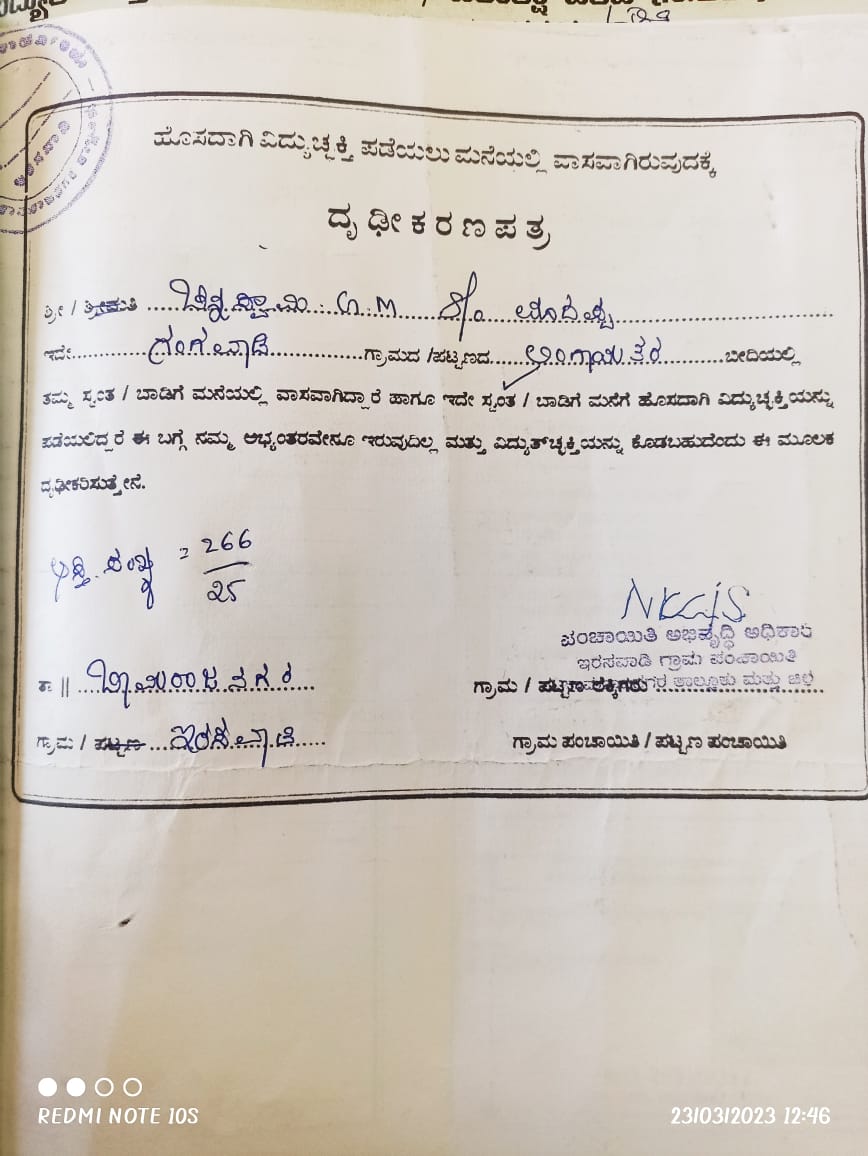 ಹೊಸದಾಗಿ ವಿದ್ಯುಚ್ಛಕ್ತಿ ಪಡೆಯಲು ಮನೆಯಲ್ಲಿ ವಾಸವಾಗಿರುವುದಕ್ಕೆ
ದೃಢೀಕರಣಪತ್ರ
ಶ್ರೀ / ಶ್ರೀಮತಿ ..... G.M S/o .....
ಇದೇ ..... ಗಂಗವಾಡಿ ..... ಗ್ರಾಮದ /ಪಟ್ಟಣದ ..... ಲಿಂಗಾಯಿತರ ..... ಬೀದಿಯಲ್ಲಿ
ತಮ್ಮ ಸ್ವಂತ / ಬಾಡಿಗೆ ಮನೆಯಲ್ಲಿ ವಾಸವಾಗಿದ್ದಾರೆ ಹಾಗೂ ಇದೇ ಸ್ವಂತ / ಬಾಡಿಗೆ ಮನೆಗೆ ಹೊಸದಾಗಿ ವಿದ್ಯುಚ್ಛಕ್ತಿಯನ್ನು
ಪಡೆಯಲಿದ್ದರೆ ಈ ಬಗ್ಗೆ ನಮ್ಮ ಅಭ್ಯಂತರವೇನೂ ಇರುವುದಿಲ್ಲ ಮತ್ತು ವಿದ್ಯುತ್‌ಚ್ಛಕ್ತಿಯನ್ನು ಕೊಡಬಹುದೆಂದು ಈ ಮೂಲಕ
ದೃಢೀಕರಿಸುತ್ತೇನೆ.
ಆಸ್ತಿ ಸಂಖ್ಯೆ = 266
25
ಪಂಚಾಯಿತಿ ಅಭಿವೃದ್ಧಿ ಅಧಿಕಾರಿ
ಇರಸವಾಡಿ ಗ್ರಾಮ ಪಂಚಾಯಿತಿ
ತಾ || ..... ಚಾಮರಾಜನಗರ .....
ಗ್ರಾಮ / ಪಟ್ಟಣ ..... ತಾಲ್ಲೂಕು ಮತ್ತು ಜಿಲ್ಲೆ
ಗ್ರಾಮ / ಪಟ್ಟಣ ..... ಇರಸವಾಡಿ .....
ಗ್ರಾಮ ಪಂಚಾಯಿತಿ / ಪಟ್ಟಣ ಪಂಚಾಯಿತಿ
REDMI NOTE 10S
23/03/2023 12:46